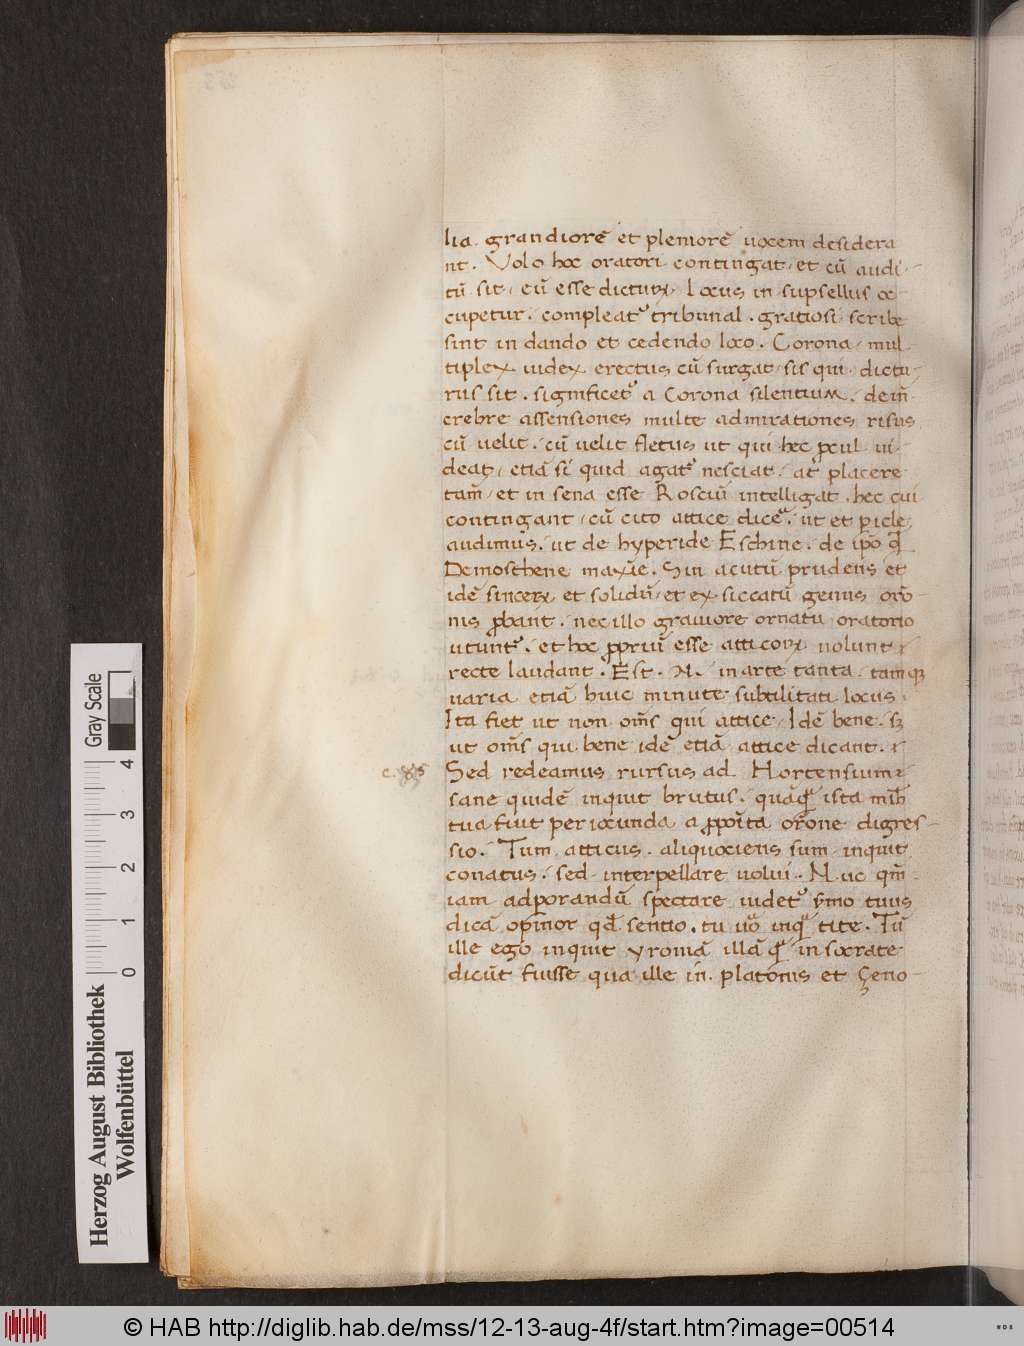 lia. grandiorē et pleniorē uocem desidera
nt. Volo hoc oratori contingat. et cū audi
tū sit. eū esse dicturꝝ. Locus in supsellius oc
cupetur. compleatꝰ tribunal. gratiosi scribe
sint in dando et cedendo loco. Corona mul
tiplex iudex erectus cū surgat sis qui dictu
rus sit. significetꝰ a Corona silentium. deiñ
crebre assensiones multe admirationes risus
cū uelit. cū uelit fletus ut qui hec ꝓcul ui
deat, etiā si quid agatꝰ nesciat. at placere
tam̄ et in sena esse Rosciū intelligat. hec cui
contingant cū cito attice dicē. ut et picle
audimus. ut de hyperide Eschine. de ip̄o ꝗ
Demosthene maxīe. Sin acutū prudens et
idē sincerꝝ et solidū et exsiccatū genus orō
nis ꝓbant. nec illo grauiore ornatu oratorio
utuntꝰ. et hoc ꝓpriū esse atticorꝝ uolunt
recte laudant. Est. N. in arte tanta. tamqꝫ
uaria etiā huic minute subtilitati locus.
Ita fiet ut non om̄s qui attice Idē bene. sꝫ
ut om̄s qui bene idē etiā attice dicant.
c. 85 Sed redeamus rursus ad Hortensium
sane quidē inquit brutus. quāqꝫ ista mih̄
tua fuit periocunda a ꝓpoīta orōne digres
sio. Tum atticus. aliquociens sum inquit
conatus. sed interpellare uolui. Nuc qm̄
iam adporandū spectare uidetꝰ sm̄o tuus
dicā opinor qd̄ sentio. tu uō inqꝫ tite. Tū
ille ego inquit yroniā illā qꝫ in socrate
dicūt fuisse qua ille in platonis et Çeno
Gray Scale
0 1 2 3 4
Herzog August Bibliothek
Wolfenbüttel
© HAB http://diglib.hab.de/mss/12-13-aug-4f/start.htm?image=00514